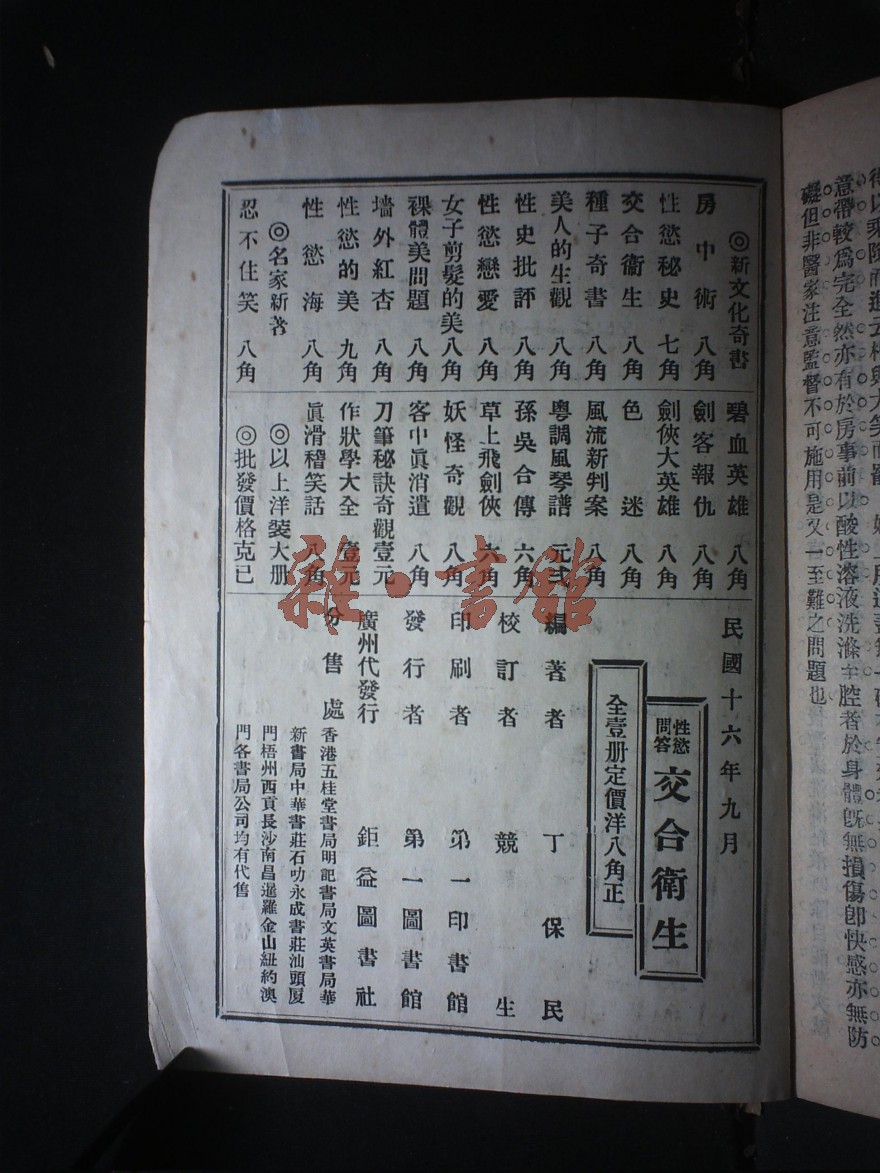 ◎新文化奇書
房中術 八角
性慾秘史 七角
交合衞生 八角
種子奇書 八角
美人的生觀 八角
性史批評 八角
性慾戀愛 八角
女子剪髮的美 八角
裸體美問題 八角
墻外紅杏 八角
性慾的美 九角
性慾海 八角
◎名家新著
忍不住笑 八角
碧血英雄 八角
劍客報仇 八角
劍俠大英雄 八角
色迷 八角
風流新判案 八角
粵調風琴譜 元弍
孫吳合傳 六角
草上飛劍俠 六角
妖怪奇觀 八角
客中眞消遣 八角
刀筆秘訣奇觀 壹元
作狀學大全 壹元
眞滑稽笑話 八角
◎以上洋裝大册
◎批發價格克已
民國十六年九月
性慾問答 交合衞生
全壹册定價洋八角正
編著者 丁保民
校訂者 競生
印刷者 第一印書館
發行者 第一圖書館
廣州代發行 鉅益圖書社
分售處 香港五桂堂書局明記書局文英書局華
新書局中華書莊石叻永成書莊汕頭厦
門梧州西貢長沙南昌暹羅金山紐約澳
門各書局公司均有代售
雜·書館
意帶較爲完全然亦有於房事前以酸性溶液洗滌
腔者於身體旣無損傷卽快感亦無防
礙但非醫家注意監督不可施用是又一至難之問題也